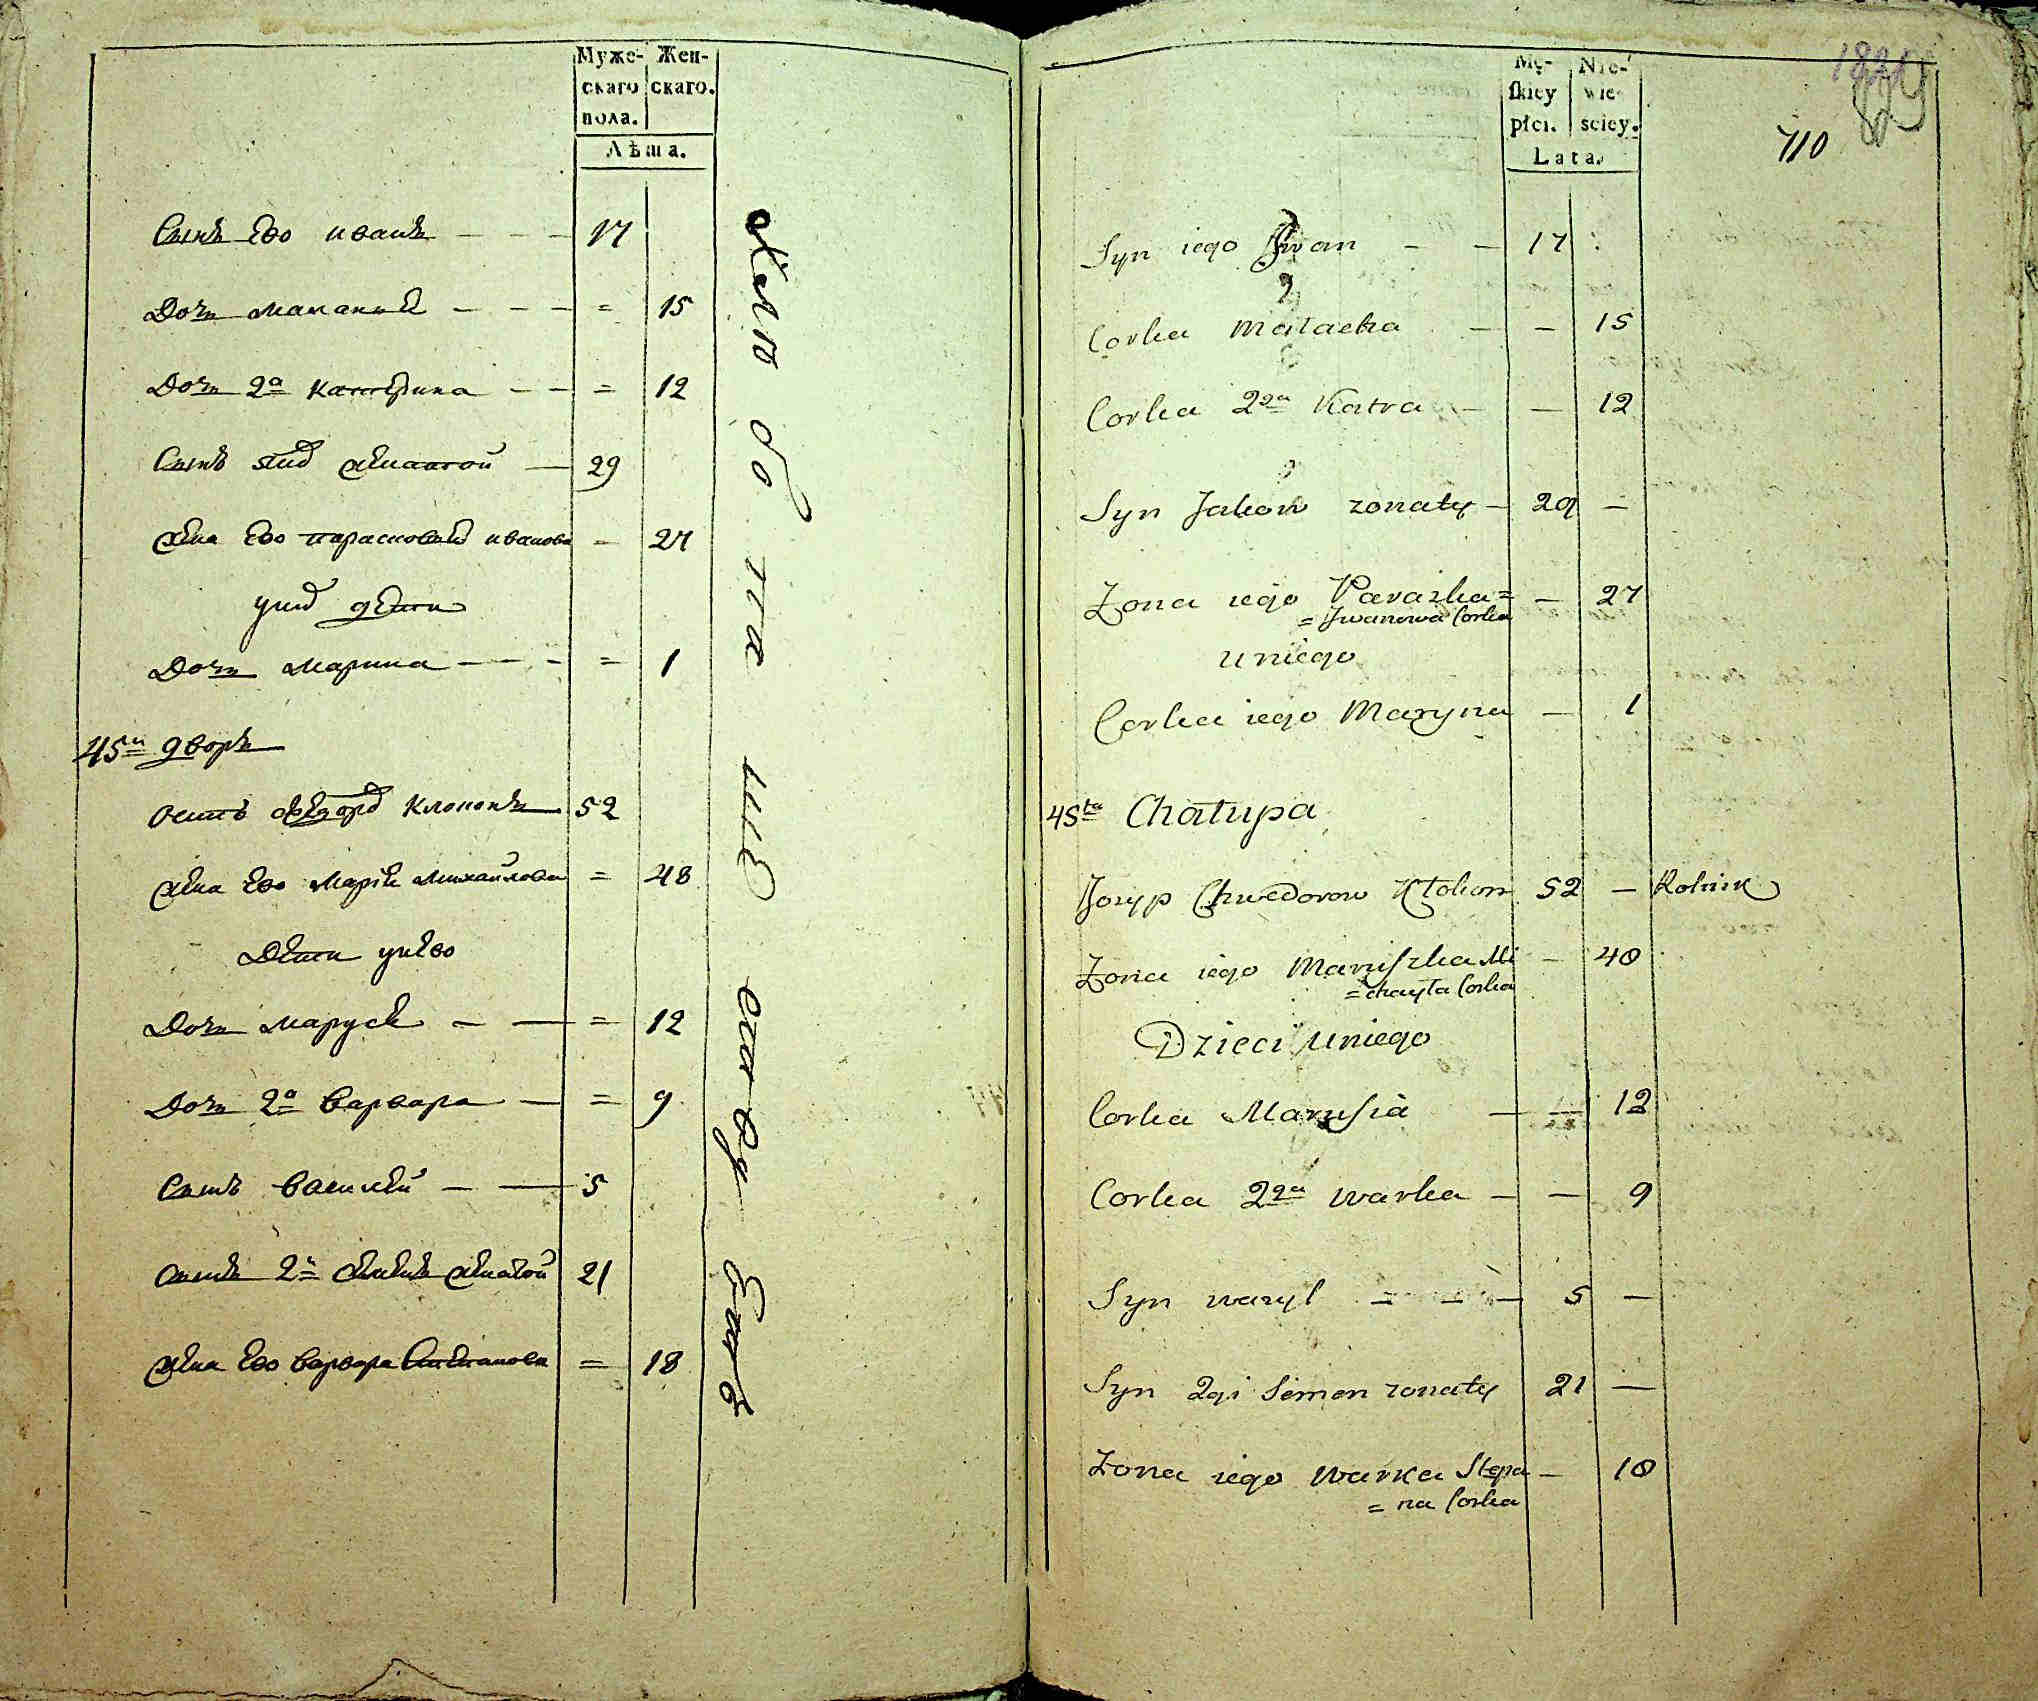 Муже- Жен-
скаго скаго.
пола.
Лѣта.
Сынъ Ево иванъ - - - 17
Дочь маланія - - - = 15
Дочь 2а катерина - - = 12
Сынъ женатой - 29
жена Ево парасковия иванова - 27
дети
Дочь марина - - - = 1
45й дворъ
осипъ федоров Клоконъ 52
жена Ево Марія Михайлова = 48
Дети унево
Дочь маруся - - = 12
Дочь 2а варвара - = 9
Сынъ василей - - 5
сынъ 2й женатой 21
жена Ево варвара Степанова = 18
Mę- Nie-
skiey wie-
płci. sciey.
Lata.
710
Syn iego Iwan - - 17
Corka Małaska - - 15
Corka 2ga Katra - - 12
Syn Jakow zonaty - 29 -
Żona iego Paraska = - 27
= Jwanowa Corka
uniego
Corka iego Maryna - 1
45ta Chałupa
Jozyp Chwedorow Kłokon 52 - Rolnik
Żona iego Maryszka Mi - 48
= chayła Corka
Dzieci uniego
Corka Marusia - - 12
Corka 2ga warka - - 9
Syn wasyl - - - 5 -
Syn 2gi Semen zonaty 21 -
Żona iego warka Stepa - 18
= na Corka